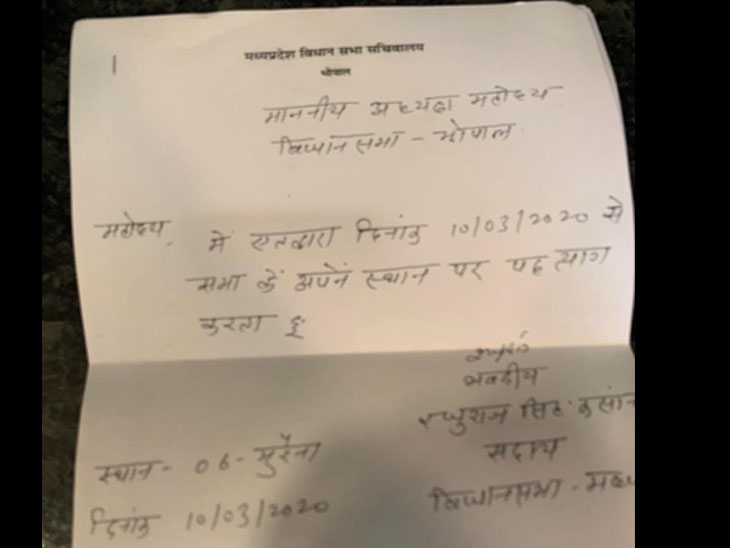 मध्यप्रदेश विधान सभा सचिवालय
भोपाल
माननीय अध्यक्ष महोदय
विधानसभा - भोपाल.
महोदय,
में एतद्वारा दिनांक 10/03/2020 से
सभा कें अपनें स्थान पर पद त्याग
करता हूं
भवदीय
रघुराज सिंह कंसान
सदस्य
स्थान - 06 - मुरैना
विधानसभा - मध्य
दिनांक 10/03/2020